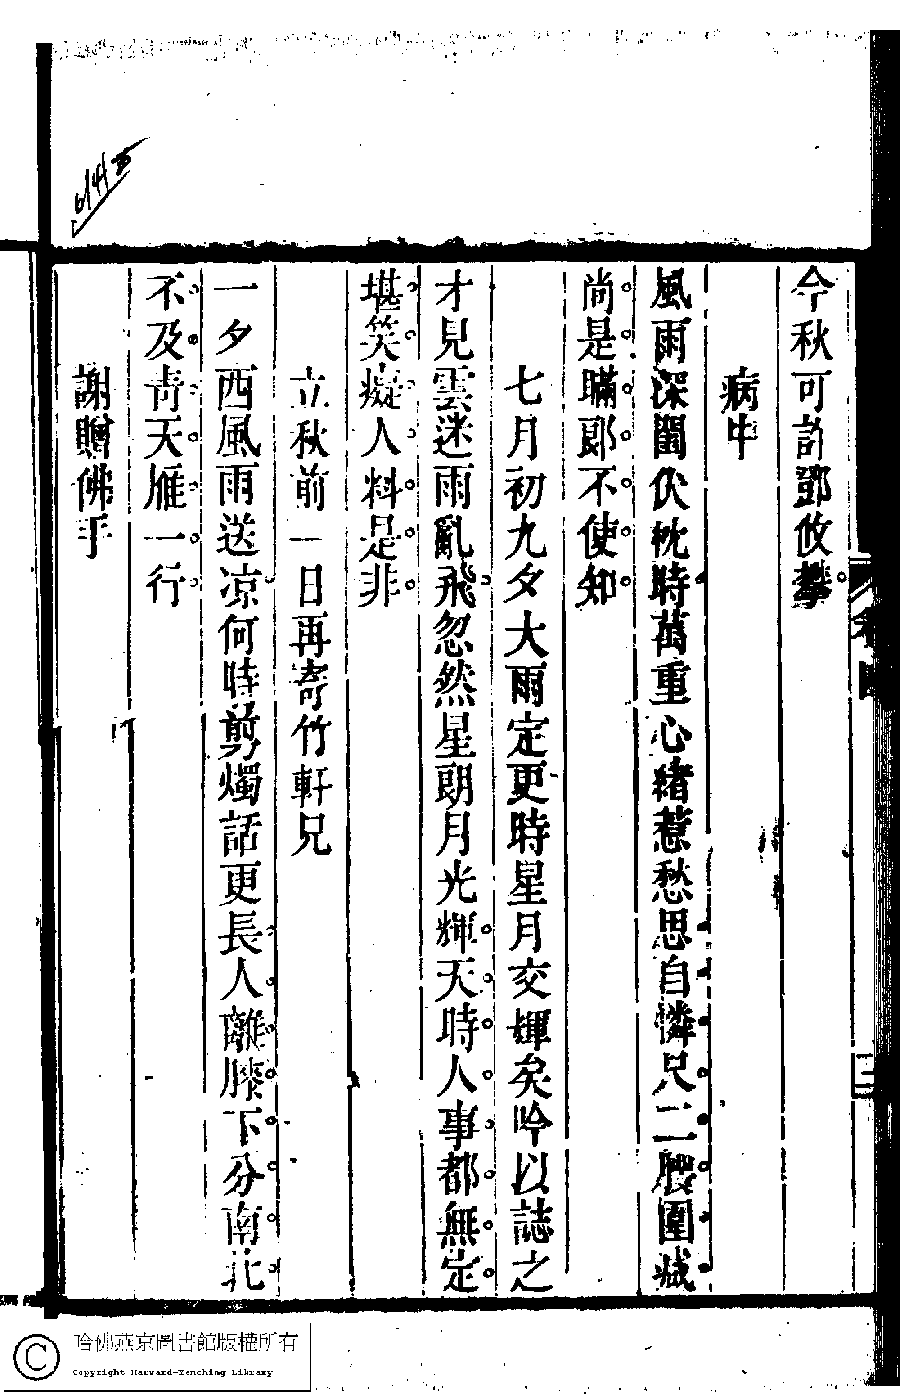 今秋可許鄧攸攀
病中
風雨深閨伏枕時萬重心緒惹愁思自憐尺二腰圍減
尚是瞞郎不使知
七月初九夕大雨定更時星月交輝矣吟以誌之
才見雲迷雨亂飛忽然星朗月光輝天時人事都無定
堪笑癡人料是非
立秋前一日再寄竹軒兄
一夕西風雨送凉何時剪燭話更長人離膝下分南北
不及青天雁一行
謝贈佛手
哈佛燕京圖書館版權所有
Copyright Harvard-Yenching Library